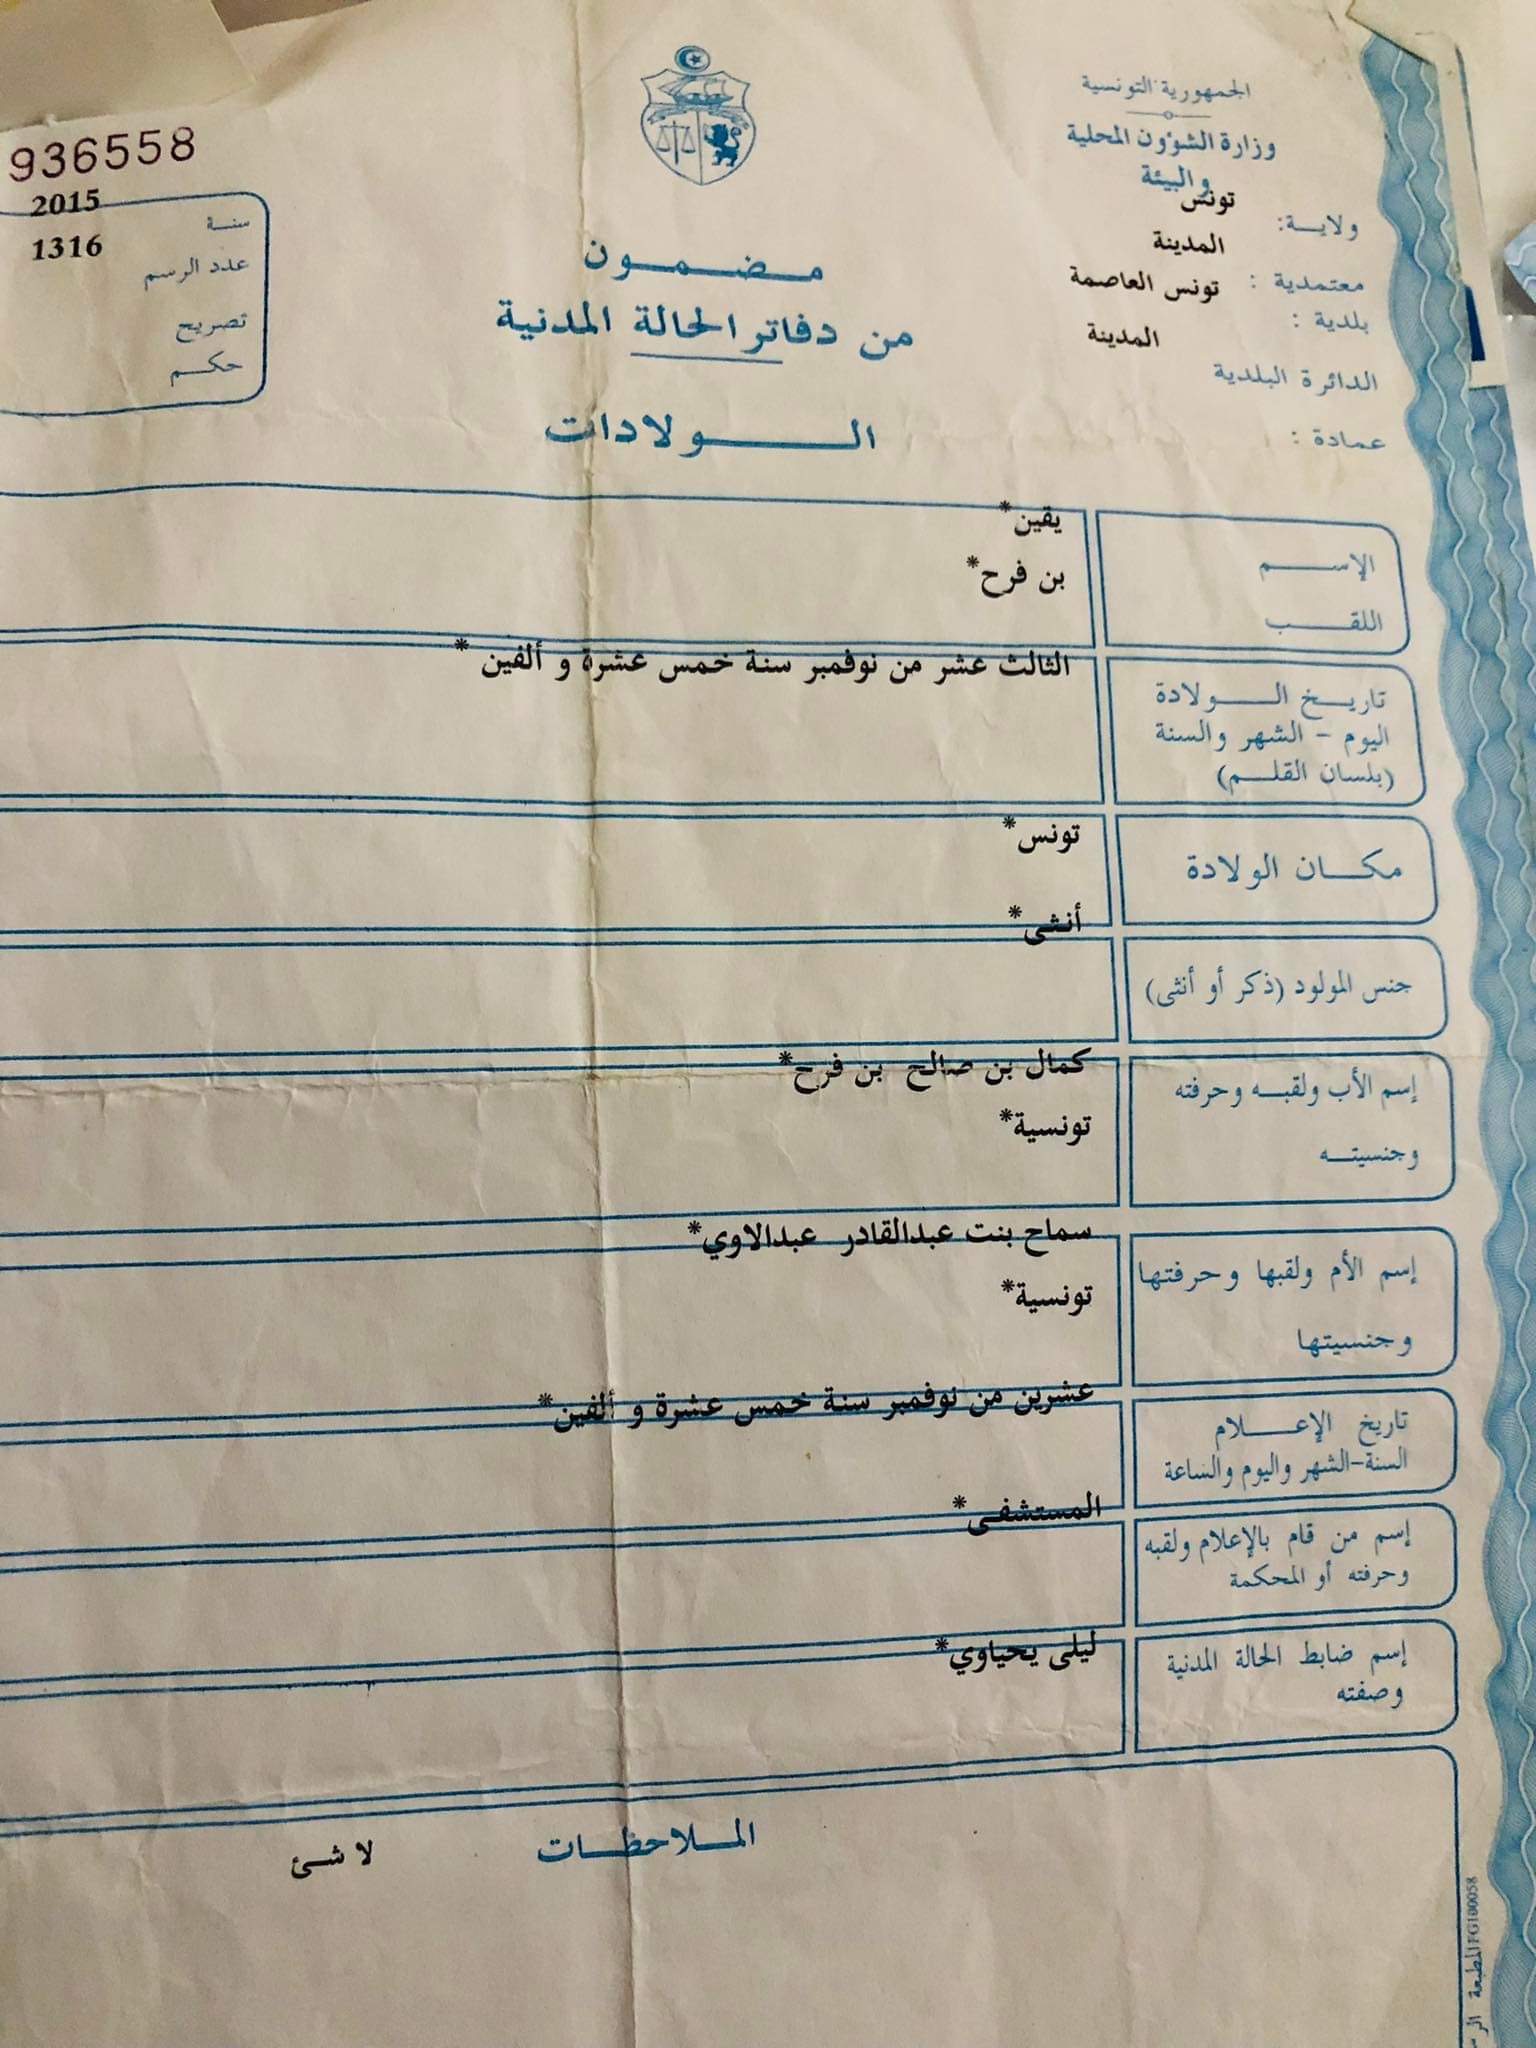 الجمهورية التونسية
وزارة الشؤون المحلية
والبيئة
ولاية: تونس
معتمدية : المدينة
بلدية : تونس العاصمة
الدائرة البلدية المدينة
عمادة :
936558
سنة 2015
عدد الرسم 1316
تصريح
حكم
مضمون
من دفاتر الحالة المدنية
الولادات
الإسم يقين*
اللقب بن فرح*
تاريخ الولادة الثالث عشر من نوفمبر سنة خمس عشرة و ألفين *
اليوم - الشهر والسنة
(بلسان القلم)
مكان الولادة تونس*
جنس المولود (ذكر أو أنثى) أنثى*
إسم الأب ولقبه وحرفته كمال بن صالح بن فرح*
وجنسيته تونسية*
إسم الأم ولقبها وحرفتها سماح بنت عبدالقادر عبدالاوي*
وجنسيتها تونسية*
تاريخ الإعلام عشرين من نوفمبر سنة خمس عشرة و ألفين*
السنة-الشهر واليوم والساعة
إسم من قام بالإعلام ولقبه المستشفى*
وحرفته أو المحكمة
إسم ضابط الحالة المدنية ليلى يحياوي*
وصفته
الملاحظات لا شئ
المطبعة FG100058